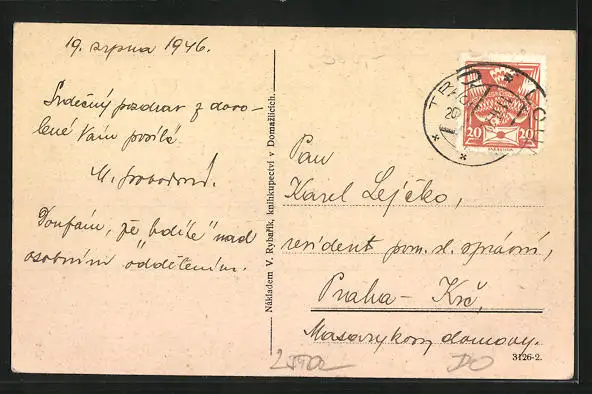 19. srpna 1946.
Srdečný pozdrav z dovo-
lené Vám posílá
M. Svobodová.
Doufám, že "bdíte" nad
osobním oddělením.
Nákladem V. Rybařík, knihkupectví v Domažlicích.
20 20
Pan
Karel Lejčko,
president pom. sl. správní,
Praha - Krč,
Masarykovy domovy.
3126-2.